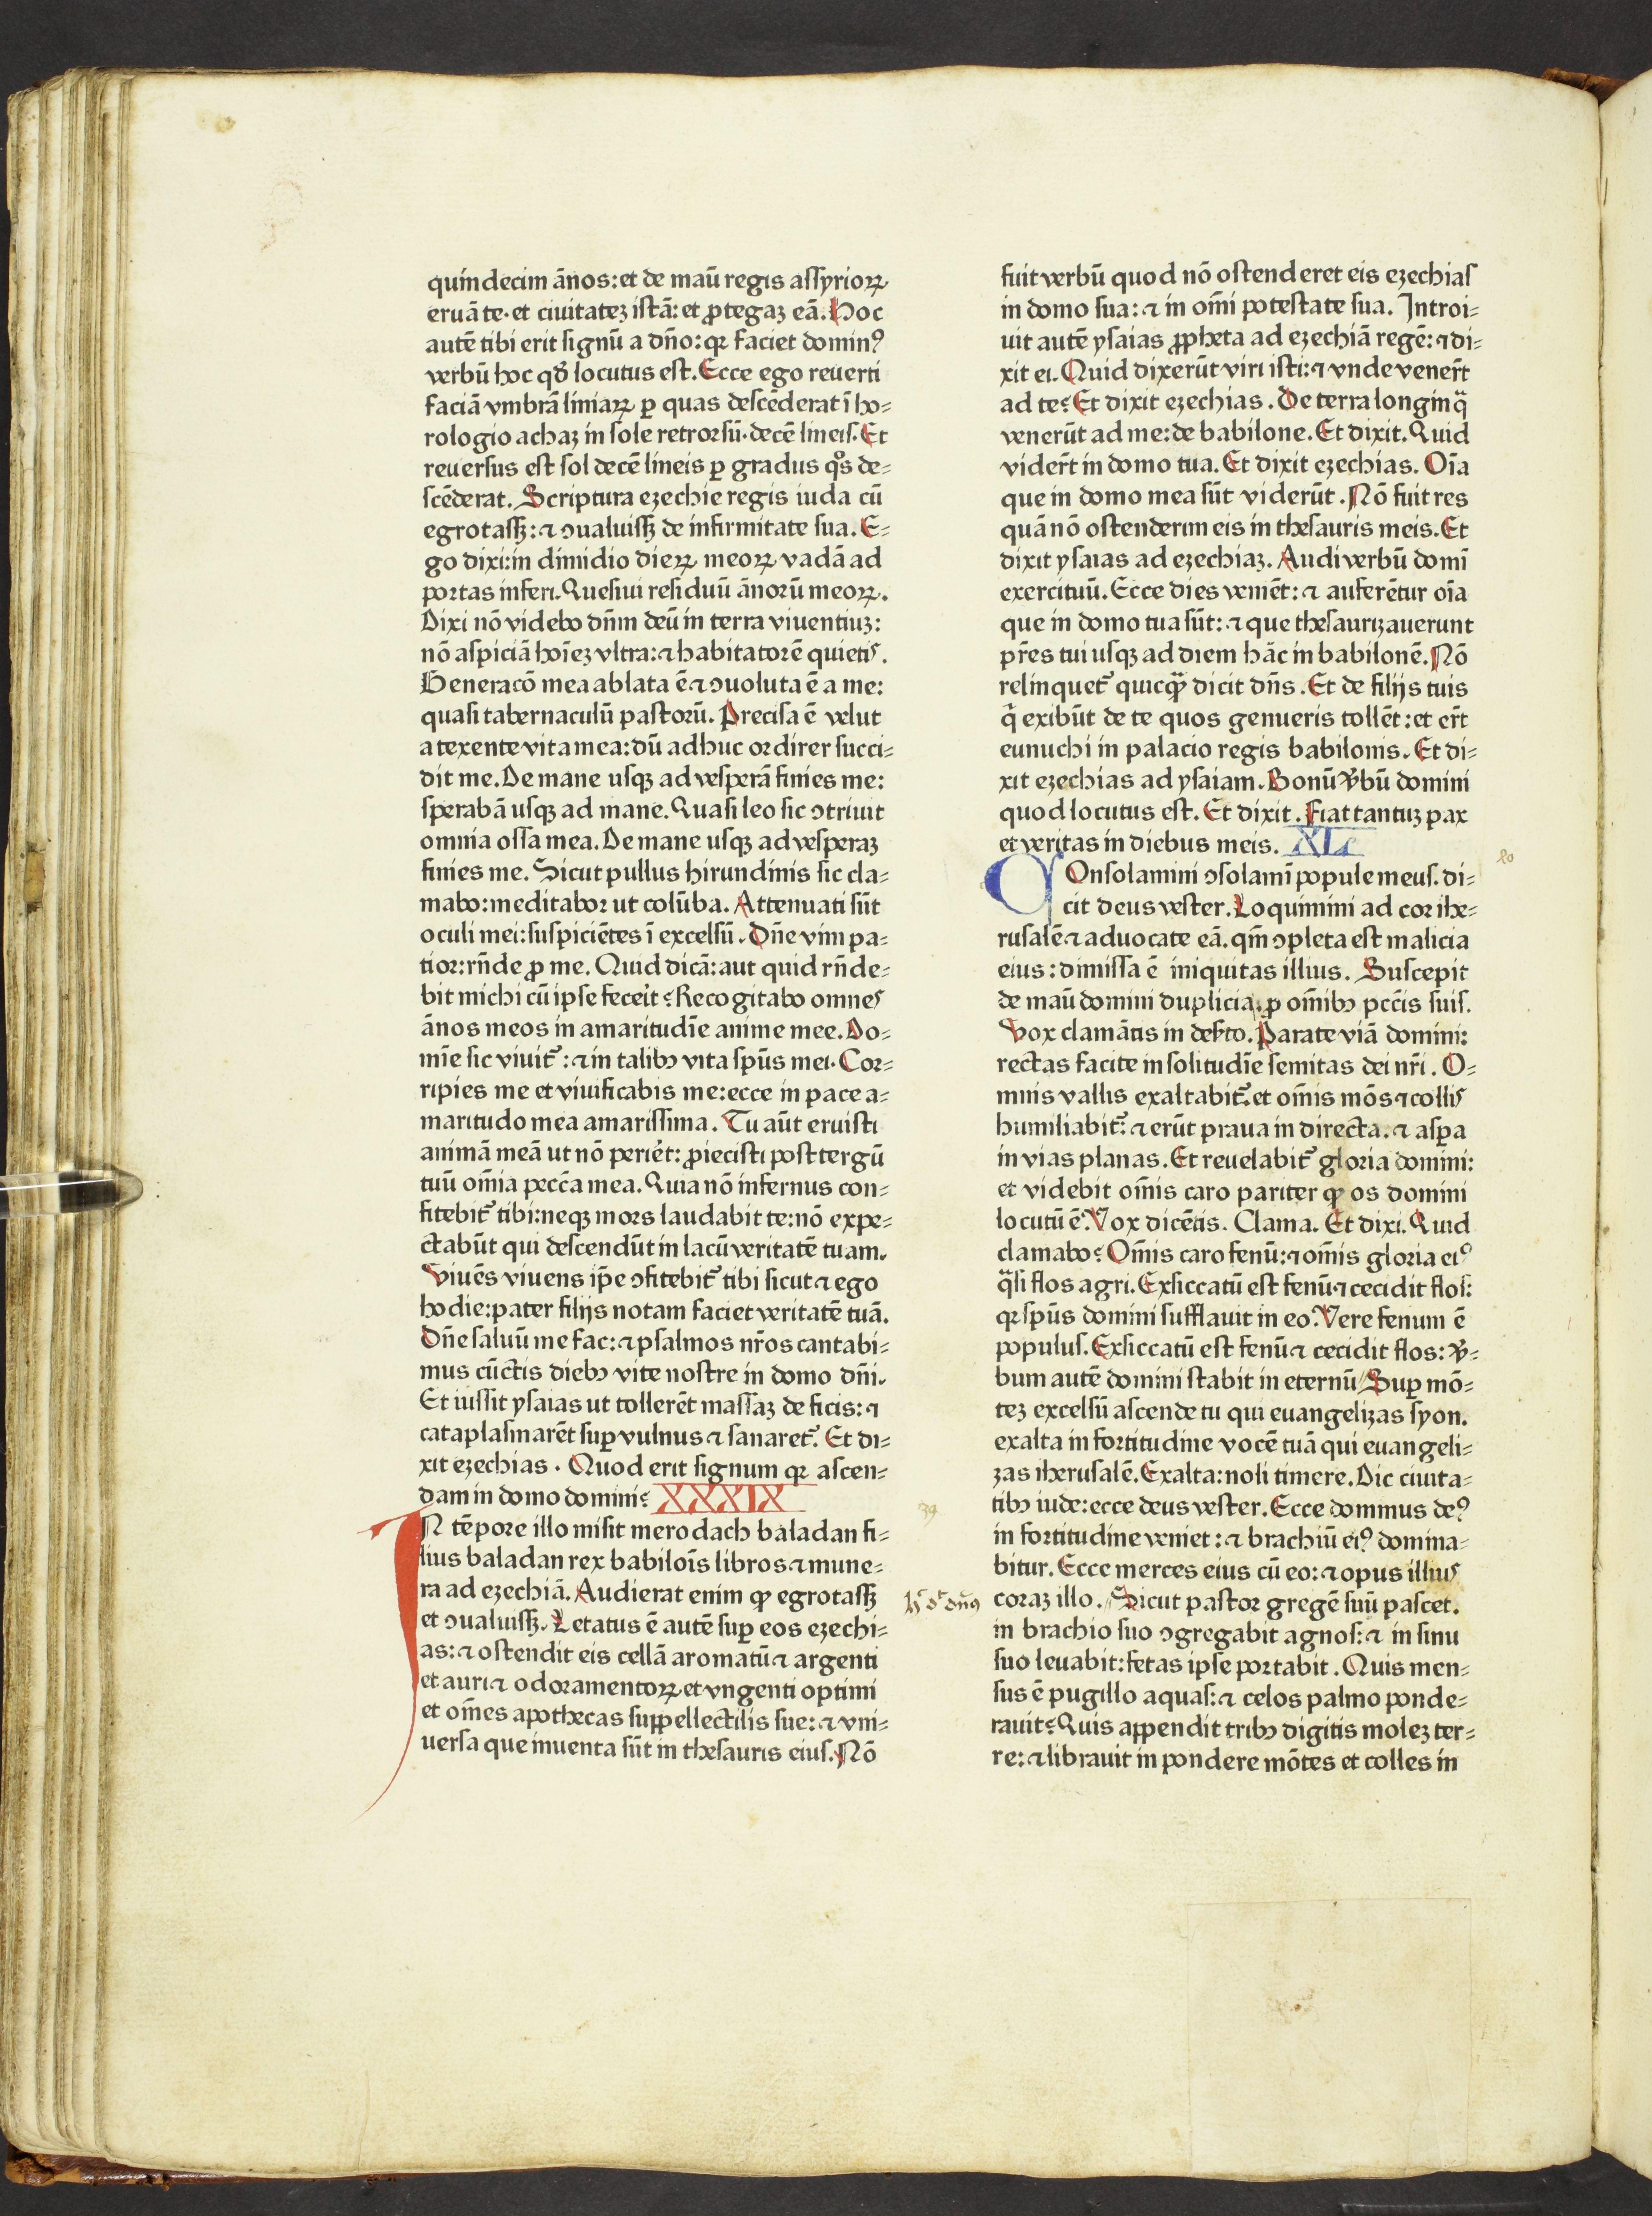 quindecim ānos: et de manū regis assyrioꝝ
eruā te. et ciuitatez istā: et ꝓtegaꝫ eā. Hoc
autē tibi erit signū a dño: qꝛ faciet dominꝰ
verbū hoc qđ locutus est. Ecce ego reuerti
faciā vmbrā liniaꝝ ꝑ quas descēderat ī ho⸗
rologio achaꝫ in sole retrorsū. decē lineis. Et
reuersus est sol decē lineis ꝑ gradus qͦs de⸗
scēderat. Scriptura ezechie regis iuda cū
egrotassꝫ: ⁊ ꝯualuissꝫ de infirmitate sua. E⸗
go dixi: in dimidio dieꝝ meoꝝ vadā ad
portas inferi. Quesiui residuū ānorū meoꝝ.
Dixi nō videbo dñm deū in terra viuentiuꝫ:
nō aspiciā hoīeꝫ vltra: ⁊ habitatorē quietis.
Generacō mea ablata ē ⁊ ꝯuoluta ē a me:
quasi tabernaculū pastorū. Precisa ē velut
a texente vita mea: dū adhuc ordirer succi⸗
dit me. De mane usqꝫ ad vesperā finies me:
sperabā usqꝫ ad mane. Quasi leo sic ꝯtriuit
omnia ossa mea. De mane usqꝫ ad vesperaꝫ
finies me. Sicut pullus hirundinis sic cla⸗
mabo: meditabor ut colūba. Attenuati sūt
oculi mei: suspiciētes ī excelsū. Dñe vim pa⸗
tior: rñde ꝓ me. Quid dicā: aut quid rñde⸗
bit michi cū ipse fecerit? Recogitabo omnes
ānos meos in amaritudīe anime mee. Do⸗
mīe sic viuit᷑: ⁊ in talibꝫ vita spūs mei. Cor⸗
ripies me et viuificabis me: ecce in pace a⸗
maritudo mea amarissima. Tu aūt eruisti
animā meā ut nō perieт: ꝓiecisti post tergū
tuū om̄ia pecc̄a mea. Quia nō infernus con⸗
fitebit᷑ tibi: neqꝫ mors laudabit te: nō expe⸗
ctabūt qui descendūt in lacū veritatē tuam.
Viuēs viuens ip̄e ꝯfitebit᷑ tibi sicut ⁊ ego
hodie: pater filijs notam faciet veritatē tuā.
Dñe saluū me fac: ⁊ psalmos nr̄os cantabi⸗
mus cūctis diebꝫ vite nostre in domo dñi.
Et iussit ysaias ut tollerēt massaꝫ de ficis: ⁊
cataplasmarēt suꝑ vulnus ⁊ sanaret᷑. Et di⸗
xit ezechias. Quod erit signum qꝛ ascen⸗
dam in domo domini? XXXIX
IN tēpore illo misit merodach baladan fi⸗
lius baladan rex babiloīs libros ⁊ mune⸗
ra ad ezechiā. Audierat enim ꝙ egrotassꝫ
et ꝯualuissꝫ. Letatus ē autē suꝑ eos ezechi⸗
as: ⁊ ostendit eis cellā aromatū ⁊ argenti
et auri ⁊ odoramentoꝝ et vngenti optimi
et om̄es apothecas suppellectilis sue: ⁊ vni⸗
uersa que inuenta sūt in thesauris eius. Nō
39
fuit verbū quod nō ostenderet eis ezechias
in domo sua: ⁊ in om̄i potestate sua. Introi⸗
uit autē ysaias ꝓpheta ad ezechiā regē: ⁊ di⸗
xit ei. Quid dixerūt viri isti: ⁊ vnde vener̄t
ad te? Et dixit ezechias. De terra longinq̄
venerūt ad me: de babilone. Et dixit. Quid
vider̄t in domo tua. Et dixit ezechias. Oīa
que in domo mea sūt viderūt. Nō fuit res
quā nō ostenderim eis in thesauris meis. Et
dixit ysaias ad ezechiaꝫ. Audi verbū domī
exercituū. Ecce dies veniēt: ⁊ auferētur oīa
que in domo tua sūt: ⁊ que thesaurizauerunt
pr̄es tui usqꝫ ad diem hāc in babilonē. Nō
relinquet᷑ quicꝗ̄ dicit dñs. Et de filijs tuis
q̄ exibūt de te quos genueris tollēt: et er̄t
eunuchi in palacio regis babilonis. Et di⸗
xit ezechias ad ysaiam. Bonū v̄bū domini
quod locutus est. Et dixit. Fiat tantuꝫ pax
et veritas in diebus meis. XL
40
COnsolamini ꝯsolamī popule meus. di⸗
cit deus vester. Loquimini ad cor ihe⸗
rusalē ⁊ aduocate eā. qm̄ ꝯpleta est malicia
eius: dimissa ē iniquitas illius. Suscepit
de manū domini duplicia: ꝓ om̄ibꝫ pcc̄is suis.
Vox clamātis in des̄to. Parate viā domini:
rectas facite in solitudīe semitas dei nr̄i. O⸗
mnis vallis exaltabit᷑. et om̄is mōs ⁊ collis
humiliabit᷑: ⁊ erūt praua in directa. ⁊ asꝑa
in vias planas. Et reuelabit᷑ gloria domini:
et videbit om̄is caro pariter ꝙ os domini
locutū ē. Vox dicētis. Clama. Et dixi. Quid
clamabo? Om̄is caro fenū: ⁊ om̄is gloria eiꝰ
q̄si flos agri. Exsiccatū est fenū ⁊ cecidit flos:
qꝛ spūs domini sufflauit in eo. Vere fenum ē
populus. Exsiccatū est fenū ⁊ cecidit flos: v̄⸗
bum autē domini stabit in eternū. Suꝑ mō⸗
teꝫ excelsū ascende tu qui euangelizas syon.
exalta in fortitudine vocē tuā qui euangeli⸗
zas iherusalē. Exalta: noli timere. Dic ciuita⸗
tibꝫ iude: ecce deus vester. Ecce dominus deꝰ
in fortitudine veniet: ⁊ brachiū eiꝰ domina⸗
bitur. Ecce merces eius cū eo: ⁊ opus illius
coraꝫ illo. Sicut pastor gregē suū pascet.
in brachio suo ꝯgregabit agnos: ⁊ in sinu
suo leuabit: fetas ipse portabit. Quis men⸗
sus ē pugillo aquas: ⁊ celos palmo ponde⸗
rauit? Quis appendit tribꝫ digitis moleꝫ ter⸗
re: ⁊ librauit in pondere mōtes et colles in